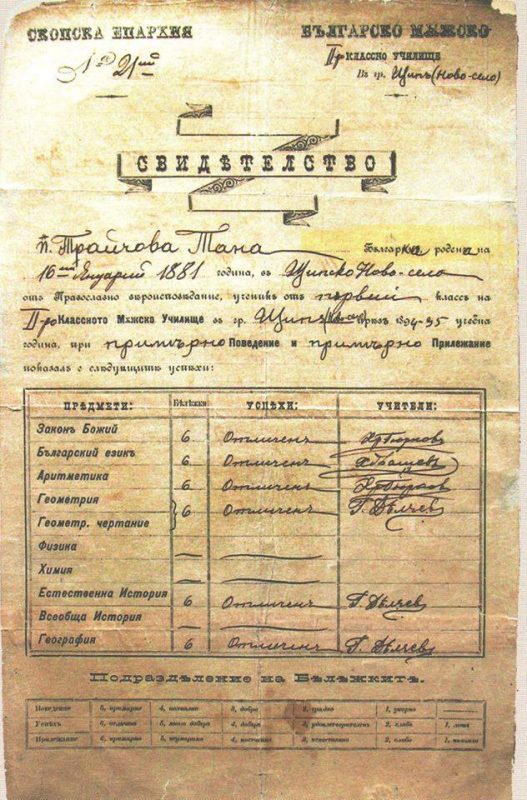 СКОПСКА ЕПАРХИЯ
БЪЛГАРСКО МѪЖСКО
No 21ий
II-ро КЛАССНО УЧИЛИЩЕ
Въ гр. Щипъ (Ново-село)
СВИДѢТЕЛСТВО
Трайчова Тана Българка родена на
16ий Януарий 1881 година, въ Щипско Ново-село
отъ Православно вѣроисповѣдание, ученикъ отъ първий классъ на
II-ро Классното Мѫжско Училище въ гр. Щипъ прѣзъ 1894-95 учебна
година, при примѣрно Поведение и примѣрно Прилежание
показалъ е слѣдующитѣ успѣхи:
ПРѢДМЕТИ: Бѣлѣжки УСПѢХИ: УЧИТЕЛИ:
Законъ Божий 6 Отличенъ
Български езикъ 6 Отличенъ
Аритметика 6 Отличенъ
Геометрия 6 Отличенъ Г. Дѣлчевъ
Геометр. чертание
Физика
Химия
Естественна История 6 Отличенъ Г. Дѣлчевъ
Всеобща История
География 6 Отличенъ Г. Дѣлчевъ
Подраздѣление на Бѣлѣжкитѣ.
Поведение 5, примѣрно 3, добро 1, укорно
Успѣхъ 6, отлично 5, много добъръ 4, добъръ 2, слабъ 1, лошъ
Прилежание 2, слабо